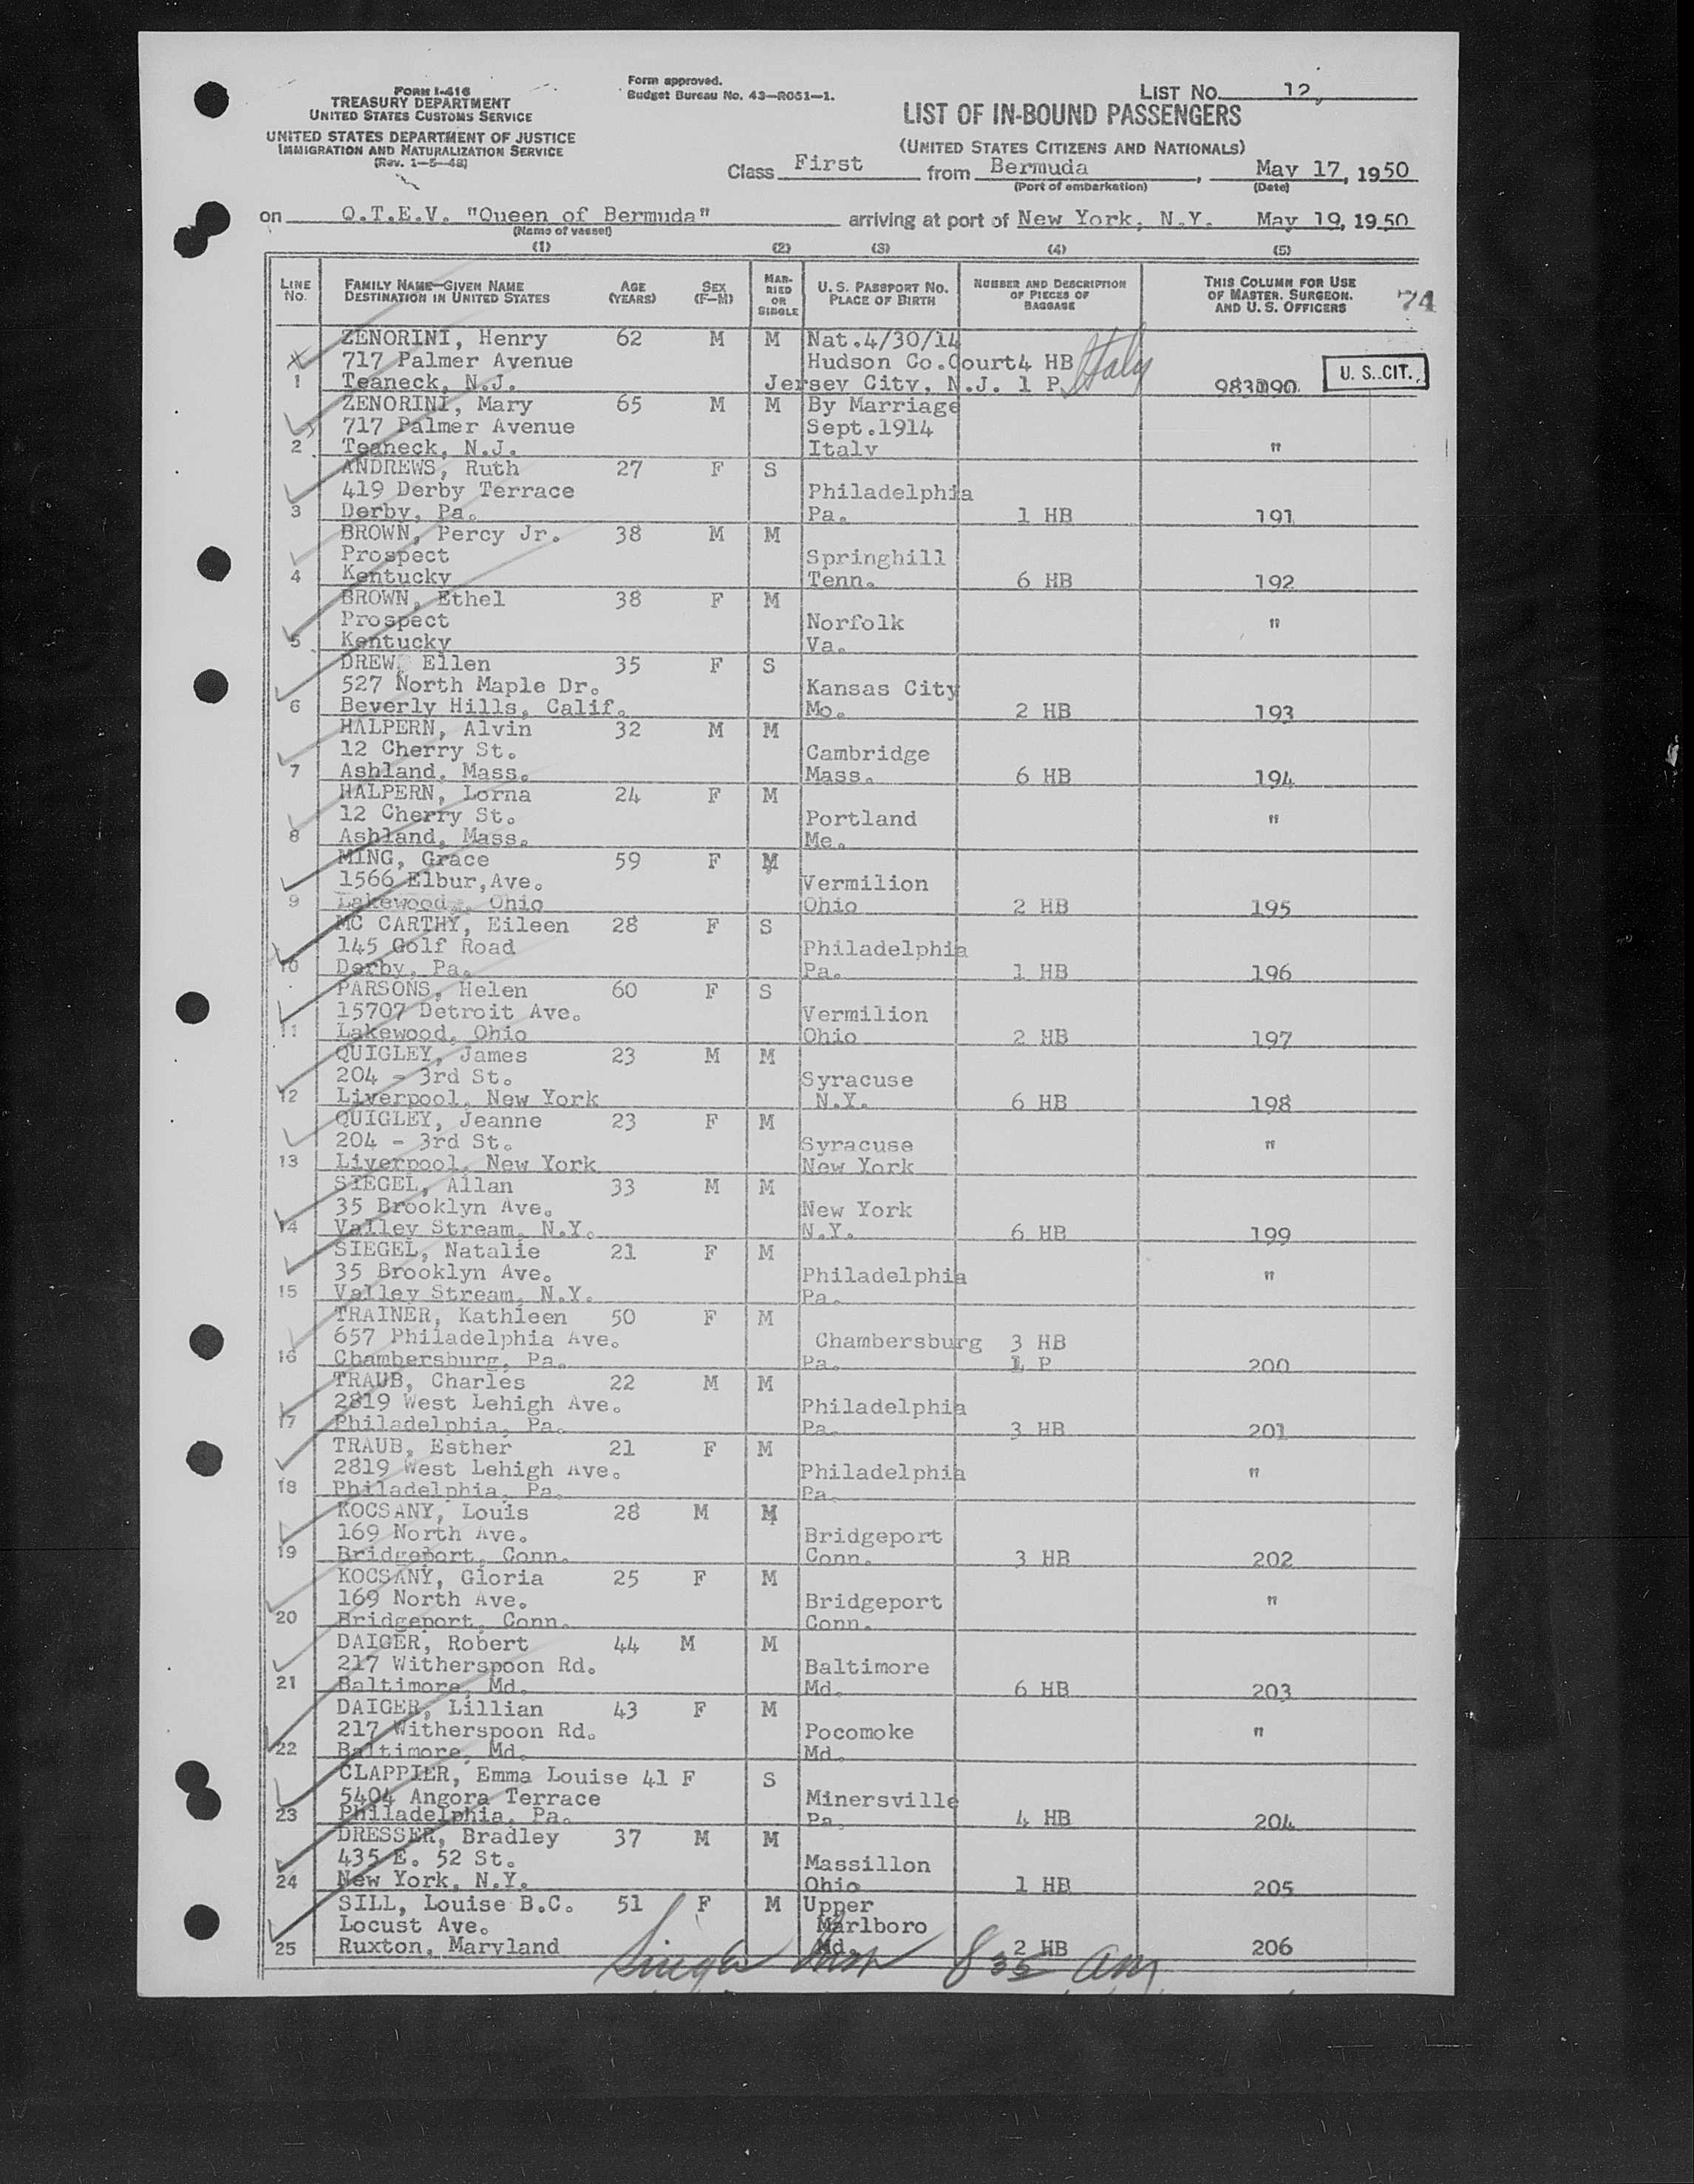 FORM I-416
TREASURY DEPARTMENT
UNITED STATES CUSTOMS SERVICE
UNITED STATES DEPARTMENT OF JUSTICE
IMMIGRATION AND NATURALIZATION SERVICE
(Rev. 1-5-48)
Form approved.
Budget Bureau No. 43—R051—1.
LIST No. 12,
LIST OF IN-BOUND PASSENGERS
(UNITED STATES CITIZENS AND NATIONALS)
Class First from Bermuda, May 17, 1950
(Port of embarkation) (Date)
on Q.T.E.V. "Queen of Bermuda" arriving at port of New York, N.Y. May 19, 1950
(Name of vessel)
(1) (2) (3) (4) (5)
LINE No. FAMILY NAME—GIVEN NAME DESTINATION IN UNITED STATES AGE (YEARS) SEX (F—M) MARRIED OR SINGLE U.S. PASSPORT No. PLACE OF BIRTH NUMBER AND DESCRIPTION OF PIECES OF BAGGAGE THIS COLUMN FOR USE OF MASTER, SURGEON, AND U. S. OFFICERS 74
ZENORINI, Henry 62 M M Nat.4/30/14
717 Palmer Avenue Hudson Co.Court 4 HB Italy
1 Teaneck, N.J. Jersey City, N.J. 1 P 983190 U. S. CIT.
ZENORINI, Mary 65 M M By Marriage
717 Palmer Avenue Sept.1914
2 Teaneck, N.J. Italy "
ANDREWS, Ruth 27 F S
419 Derby Terrace Philadelphia
3 Derby, Pa. Pa. 1 HB 191
BROWN, Percy Jr. 38 M M
Prospect Springhill
4 Kentucky Tenn. 6 HB 192
BROWN, Ethel 38 F M
Prospect Norfolk "
5 Kentucky Va.
DREW, Ellen 35 F S
527 North Maple Dr. Kansas City
6 Beverly Hills, Calif. Mo. 2 HB 193
HALPERN, Alvin 32 M M
12 Cherry St. Cambridge
7 Ashland, Mass. Mass. 6 HB 194
HALPERN, Lorna 24 F M
12 Cherry St. Portland "
8 Ashland, Mass. Me.
MING, Grace 59 F M
1566 Elbur,Ave. Vermilion
9 Lakewood, Ohio Ohio 2 HB 195
MC CARTHY, Eileen 28 F S
145 Golf Road Philadelphia
10 Derby, Pa. Pa. 1 HB 196
PARSONS, Helen 60 F S
15707 Detroit Ave. Vermilion
11 Lakewood, Ohio Ohio 2 HB 197
QUIGLEY, James 23 M M
204 - 3rd St. Syracuse
12 Liverpool, New York N.Y. 6 HB 198
QUIGLEY, Jeanne 23 F M
204 - 3rd St. Syracuse "
13 Liverpool, New York New York
SIEGEL, Allan 33 M M
35 Brooklyn Ave. New York
14 Valley Stream, N.Y. N.Y. 6 HB 199
SIEGEL, Natalie 21 F M
35 Brooklyn Ave. Philadelphia "
15 Valley Stream, N.Y. Pa.
TRAINER, Kathleen 50 F M
657 Philadelphia Ave. Chambersburg 3 HB
16 Chambersburg, Pa. Pa. 1 P 200
TRAUB, Charles 22 M M
2819 West Lehigh Ave. Philadelphia
17 Philadelphia, Pa. Pa. 3 HB 201
TRAUB, Esther 21 F M
2819 West Lehigh Ave. Philadelphia "
18 Philadelphia, Pa. Pa.
KOCSANY, Louis 28 M M
169 North Ave. Bridgeport
19 Bridgeport, Conn. Conn. 3 HB 202
KOCSANY, Gloria 25 F M
169 North Ave. Bridgeport "
20 Bridgeport, Conn. Conn.
DAIGER, Robert 44 M M
217 Witherspoon Rd. Baltimore
21 Baltimore, Md. Md. 6 HB 203
DAIGER, Lillian 43 F M
217 Witherspoon Rd. Pocomoke "
22 Baltimore, Md. Md.
CLAPPIER, Emma Louise 41 F S
5404 Angora Terrace Minersville
23 Philadelphia, Pa. Pa. 4 HB 204
DRESSER, Bradley 37 M M
435 E. 52 St. Massillon
24 New York, N.Y. Ohio 1 HB 205
SILL, Louise B.C. 51 F M Upper
Locust Ave. Marlboro
25 Ruxton, Maryland Md. 2 HB 206
8 35 am